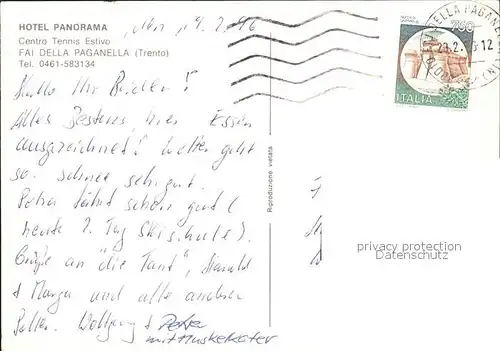 HOTEL PANORAMA
Centro Tennis Estivo
FAI DELLA PAGANELLA (Trento)
Tel. 0461-583134
den 19.2.96
Hallo Ihr Beiden!
Alles Bestens hier Essen
ausgezeichnet! Wetter geht
so. Schnee sehr gut.
Petra fährt schon gut (
heute 2. Tag Skischule).
Grüße an "die Tant", Harald
& Marga und alle anderen
Wolfgang & Petra
mit Muskelkater
Riproduzione vietata
750
ITALIA
DELLA PAGANELLA
privacy protection
by AnsichtskartenVersand